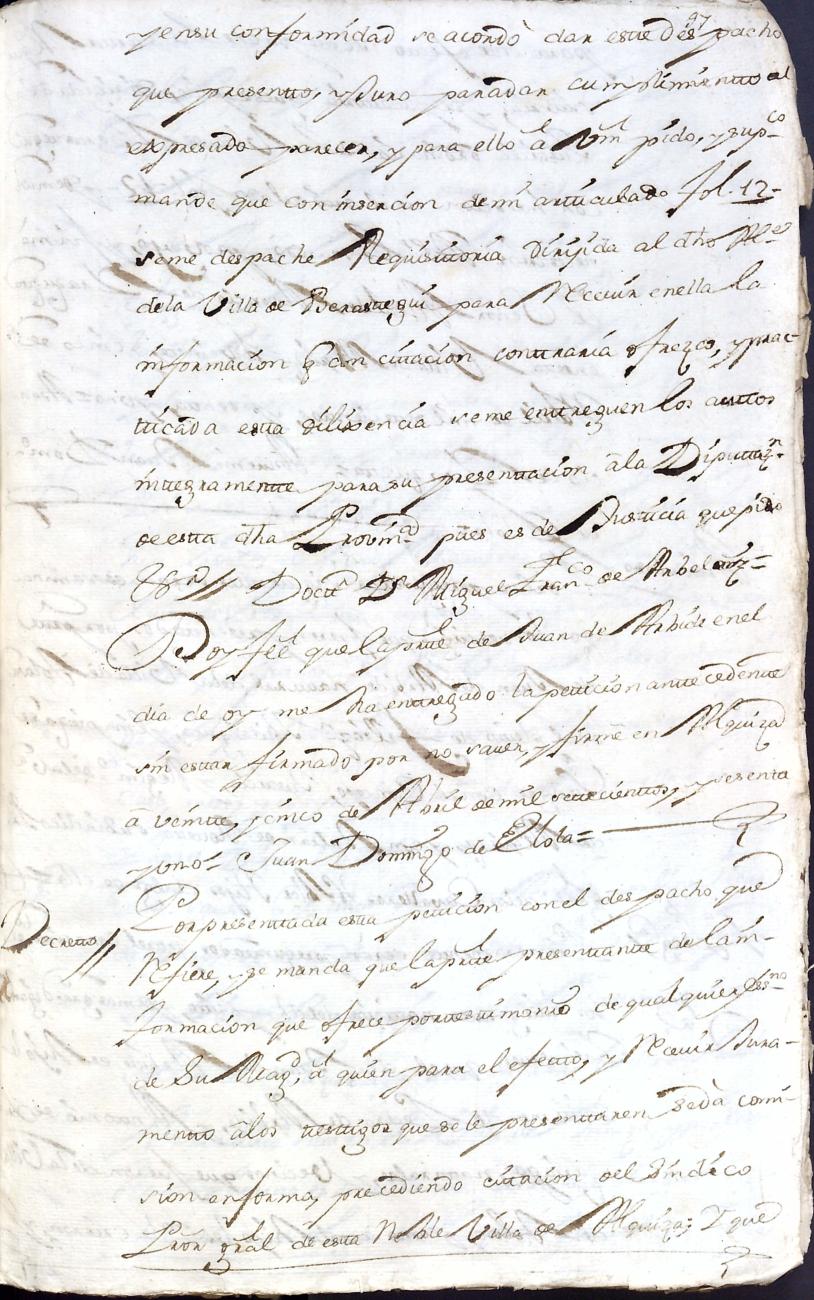 97
y en su conformidad se acordò dar este despacho
que presentto, y Juro para dar cumplimientto al
expresado parecer, y para ello à Vm pido, y supco
mande que con insercion de mi articulado fol. 12-
se me despache Requisitoria dirijida al dho
de la Villa de Berastegui para Recevir en ella la
informacion q con citacion contraria ofrezco, y prac-
ticada esta dilixencia se me enttreguen los auttos
integramentte para su presenttacion â la Diputtazn
de esta dha Provinza pues es de Justicia que pido
Doctr Dn Miguel Franco de Arbelaiz =
Doy feè que la parte de Juan de Arbide en el
dia de oy me ha entregado la peticion antecedente
sin estar firmado por no saver, y firmè en Alquiza
à veinte, y cinco de Abril de mil settecientos, y sesenta
y uno = Juan Domingo de Elola =
Decretto //
Por presentada esta peticion con el despacho que
Refiere, y se manda que la parte presentante de la in-
formacion que ofrece por testimonio de qualquier essno
de Su Magd, à quien para el efectto, y Recevir Jura-
mentto â los testigos que se le presenttaren se dà comi-
sion en forma, precediendo citacion del Sindico
Pror gral de esta Noble Villa de Alquiza; Y que